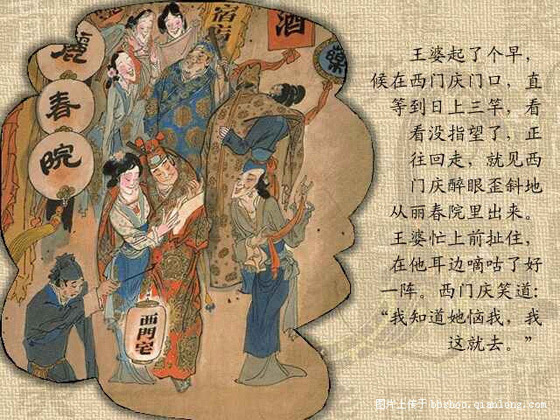 酒
宿
麗
春
院
西門宅
王婆起了个早，
候在西门庆门口，直
等到日上三竿，看
看没指望了，正
往回走，就见西
门庆醉眼歪斜地
从丽春院里出来。
王婆忙上前扯住，
在他耳边嘀咕了好
一阵。西门庆笑道：
“我知道她恼我，我
这就去。”
图片上传于